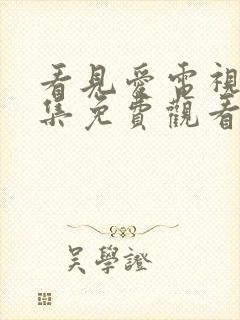 看見愛電視
集免費觀看
吳學證